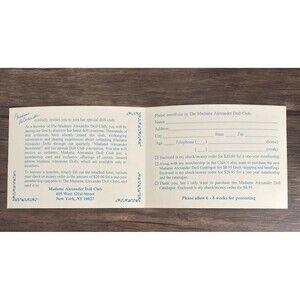 Madame
Alexander
cordially invites you to join her special doll club.
As a member of The Madame Alexander Doll Club, you will be
among the first to discover her latest doll creations. Thousands of
and
experiences about collecting Madame Alexander
dolls through our quarterly, "Madame Alexander
and our special Doll Club
members, an exclusive Madame Alexander Doll Club
membership card and exclusive offerings of certain limited
edition Madame Alexander Dolls, which are available only to
members.
To become a member, simply fill out the attached form, include
your check or money order in the amount of $20.00 for a one-year
membership in The Madame Alexander Doll Club, and
mail it to:
Madame Alexander Doll Club
615 West 131st Street
New York, NY 10027
Please enroll me in The Madame Alexander Doll Club.
Name
Address
City State Zip
Age Telephone ( ) (home)
( ) (work)
Enclosed is my check/money order for $20.00 for a one-year membership.
Along with my membership in the Club, I also want to purchase the
Madame Alexander Doll Catalogue for $8.95
Enclosed is my check/money order for $28.95 for a one-year membership
and the catalogue.
Thank you, but I only want to purchase the Madame Alexander Doll
Catalogue. Enclosed is my check/money order for $8.95.
Please allow 6 - 8 weeks for processing